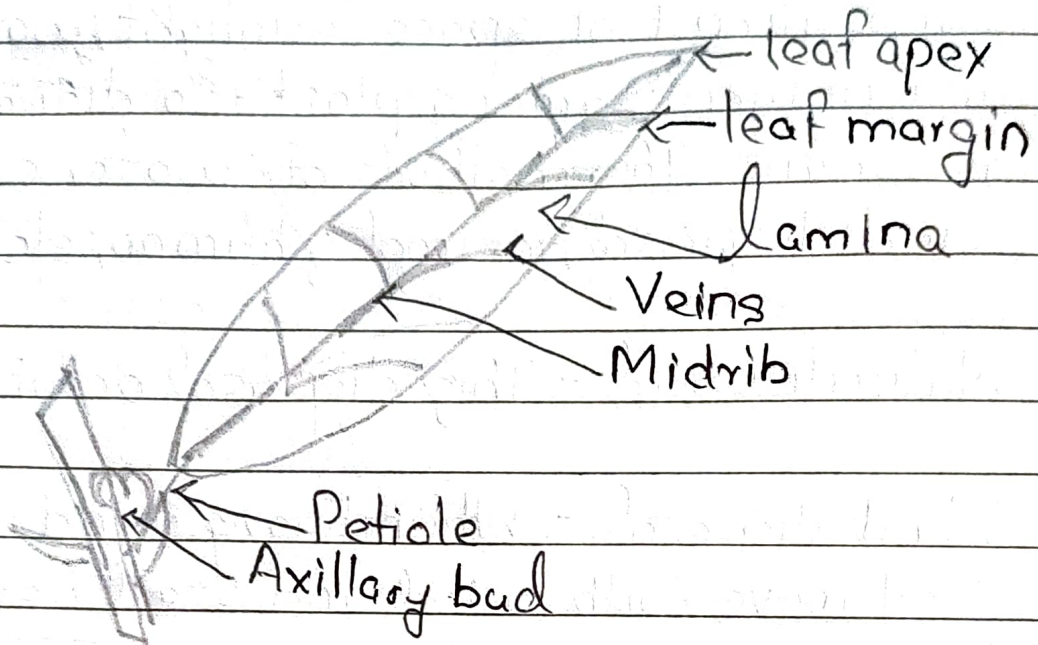 leaf apex
leaf margin
lamina
Veins
Midrib
Petiole
Axillary bud